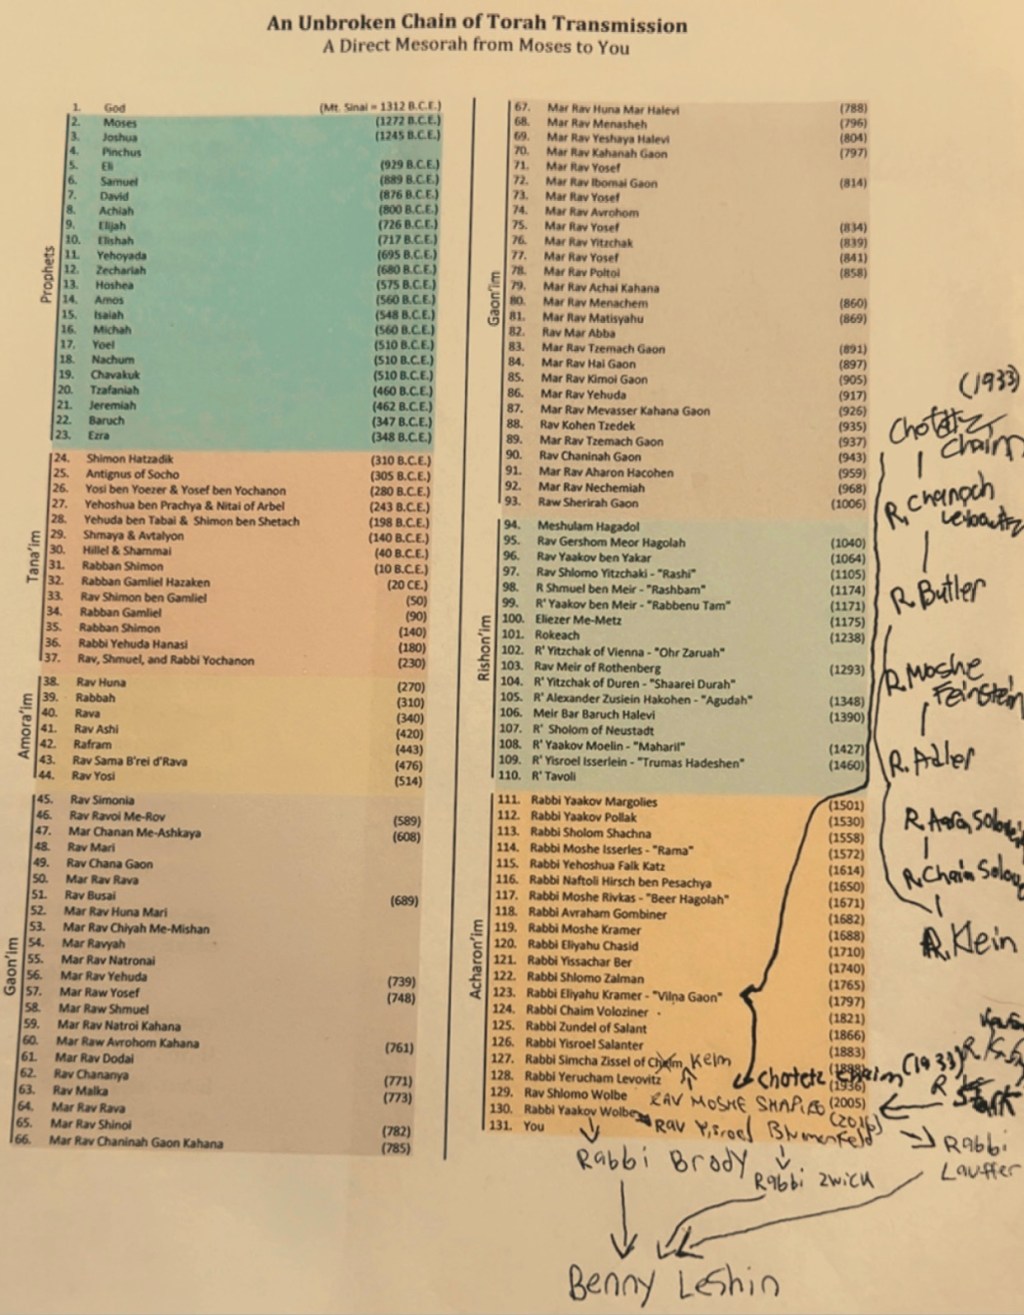 An Unbroken Chain of Torah Transmission
A Direct Mesorah from Moses to You
Prophets
1. God (Mt. Sinai = 1312 B.C.E.)
2. Moses (1272 B.C.E.)
3. Joshua (1245 B.C.E.)
4. Pinchus
5. Eli (929 B.C.E.)
6. Samuel (889 B.C.E.)
7. David (876 B.C.E.)
8. Achiah (800 B.C.E.)
9. Elijah (726 B.C.E.)
10. Elishah (717 B.C.E.)
11. Yehoyada (695 B.C.E.)
12. Zechariah (680 B.C.E.)
13. Hoshea (575 B.C.E.)
14. Amos (560 B.C.E.)
15. Isaiah (548 B.C.E.)
16. Michah (560 B.C.E.)
17. Yoel (510 B.C.E.)
18. Nachum (510 B.C.E.)
19. Chavakuk (510 B.C.E.)
20. Tzafaniah (460 B.C.E.)
21. Jeremiah (462 B.C.E.)
22. Baruch (347 B.C.E.)
23. Ezra (348 B.C.E.)
Tana'im
24. Shimon Hatzadik (310 B.C.E.)
25. Antignus of Socho (305 B.C.E.)
26. Yosi ben Yoezer & Yosef ben Yochanon (280 B.C.E.)
27. Yehoshua ben Prachya & Nitai of Arbel (243 B.C.E.)
28. Yehuda ben Tabai & Shimon ben Shetach (198 B.C.E.)
29. Shmaya & Avtalyon (140 B.C.E.)
30. Hillel & Shammai (40 B.C.E.)
31. Rabban Shimon (10 B.C.E.)
32. Rabban Gamliel Hazaken (20 CE.)
33. Rav Shimon ben Gamliel (50)
34. Rabban Gamliel (90)
35. Rabban Shimon (140)
36. Rabbi Yehuda Hanasi (180)
37. Rav, Shmuel, and Rabbi Yochanon (230)
Amora'im
38. Rav Huna (270)
39. Rabbah (310)
40. Rava (340)
41. Rav Ashi (420)
42. Rafram (443)
43. Rav Sama B'rei d'Rava (476)
44. Rav Yosi (514)
Gaon'im
45. Rav Simonia
46. Rav Ravoi Me-Rov (589)
47. Mar Chanan Me-Ashkaya (608)
48. Rav Mari
49. Rav Chana Gaon
50. Mar Rav Rava
51. Rav Busai (689)
52. Mar Rav Huna Mari
53. Mar Rav Chiyah Me-Mishan
54. Mar Ravyah
55. Mar Rav Natronai
56. Mar Rav Yehuda (739)
57. Mar Raw Yosef (748)
58. Mar Raw Shmuel
59. Mar Rav Natroi Kahana
60. Mar Raw Avrohom Kahana (761)
61. Mar Rav Dodai
62. Rav Chananya (771)
63. Rav Malka (773)
64. Mar Rav Rava
65. Mar Rav Shinoi (782)
66. Mar Rav Chaninah Gaon Kahana (785)
Gaon'im
67. Mar Rav Huna Mar Halevi (788)
68. Mar Rav Menasheh (796)
69. Mar Rav Yeshaya Halevi (804)
70. Mar Rav Kahanah Gaon (797)
71. Mar Rav Yosef
72. Mar Rav Ibomai Gaon (814)
73. Mar Rav Yosef
74. Mar Rav Avrohom
75. Mar Rav Yosef (834)
76. Mar Rav Yitzchak (839)
77. Mar Rav Yosef (841)
78. Mar Rav Poltoi (858)
79. Mar Rav Achai Kahana
80. Mar Rav Menachem (860)
81. Mar Rav Matisyahu (869)
82. Rav Mar Abba
83. Mar Rav Tzemach Gaon (891)
84. Mar Rav Hai Gaon (897)
85. Mar Rav Kimoi Gaon (905)
86. Mar Rav Yehuda (917)
87. Mar Rav Mevasser Kahana Gaon (926)
88. Rav Kohen Tzedek (935)
89. Mar Rav Tzemach Gaon (937)
90. Rav Chaninah Gaon (943)
91. Mar Rav Aharon Hacohen (959)
92. Mar Rav Nechemiah (968)
93. Raw Sherirah Gaon (1006)
Rishon'im
94. Meshulam Hagadol
95. Rav Gershom Meor Hagolah (1040)
96. Rav Yaakov ben Yakar (1064)
97. Rav Shlomo Yitzchaki - "Rashi" (1105)
98. R Shmuel ben Meir - "Rashbam" (1174)
99. R' Yaakov ben Meir - "Rabbenu Tam" (1171)
100. Eliezer Me-Metz (1175)
101. Rokeach (1238)
102. R' Yitzchak of Vienna - "Ohr Zaruah"
103. Rav Meir of Rothenberg (1293)
104. R' Yitzchak of Duren - "Shaarei Durah"
105. R' Alexander Zusiein Hakohen - "Agudah" (1348)
106. Meir Bar Baruch Halevi (1390)
107. R' Sholom of Neustadt
108. R' Yaakov Moelin - "Maharil" (1427)
109. R' Yisroel Isserlein - "Trumas Hadeshen" (1460)
110. R' Tavoli
Acharon'im
111. Rabbi Yaakov Margolies (1501)
112. Rabbi Yaakov Pollak (1530)
113. Rabbi Sholom Shachna (1558)
114. Rabbi Moshe Isserles - "Rama" (1572)
115. Rabbi Yehoshua Falk Katz (1614)
116. Rabbi Naftoli Hirsch ben Pesachya (1650)
117. Rabbi Moshe Rivkas - "Beer Hagolah" (1671)
118. Rabbi Avraham Gombiner (1682)
119. Rabbi Moshe Kramer (1688)
120. Rabbi Eliyahu Chasid (1710)
121. Rabbi Yissachar Ber (1740)
122. Rabbi Shlomo Zalman (1765)
123. Rabbi Eliyahu Kramer - "Vilna Gaon" (1797)
124. Rabbi Chaim Voloziner (1821)
125. Rabbi Zundel of Salant (1866)
126. Rabbi Yisroel Salanter (1883)
127. Rabbi Simcha Zissel of Kelm (1888)
128. Rabbi Yerucham Levovitz (1936)
Chofetz Chaim (1933)
129. Rav Shlomo Wolbe (2005)
RAV MOSHE SHAPIRO (2016)
130. Rabbi Yaakov Wolbe
Rav Yisroel Blumenfeld
131. You
Rabbi Brody
Rabbi Zwick
Rabbi
Lauffer
Benny Leshin
(1933)
Chofetz
Chaim
R. Chanoch
Leibowitz
R. Butler
R. Moshe
Feinstein
R. Adler
R. Aaron
R. Chaim
R. Klein